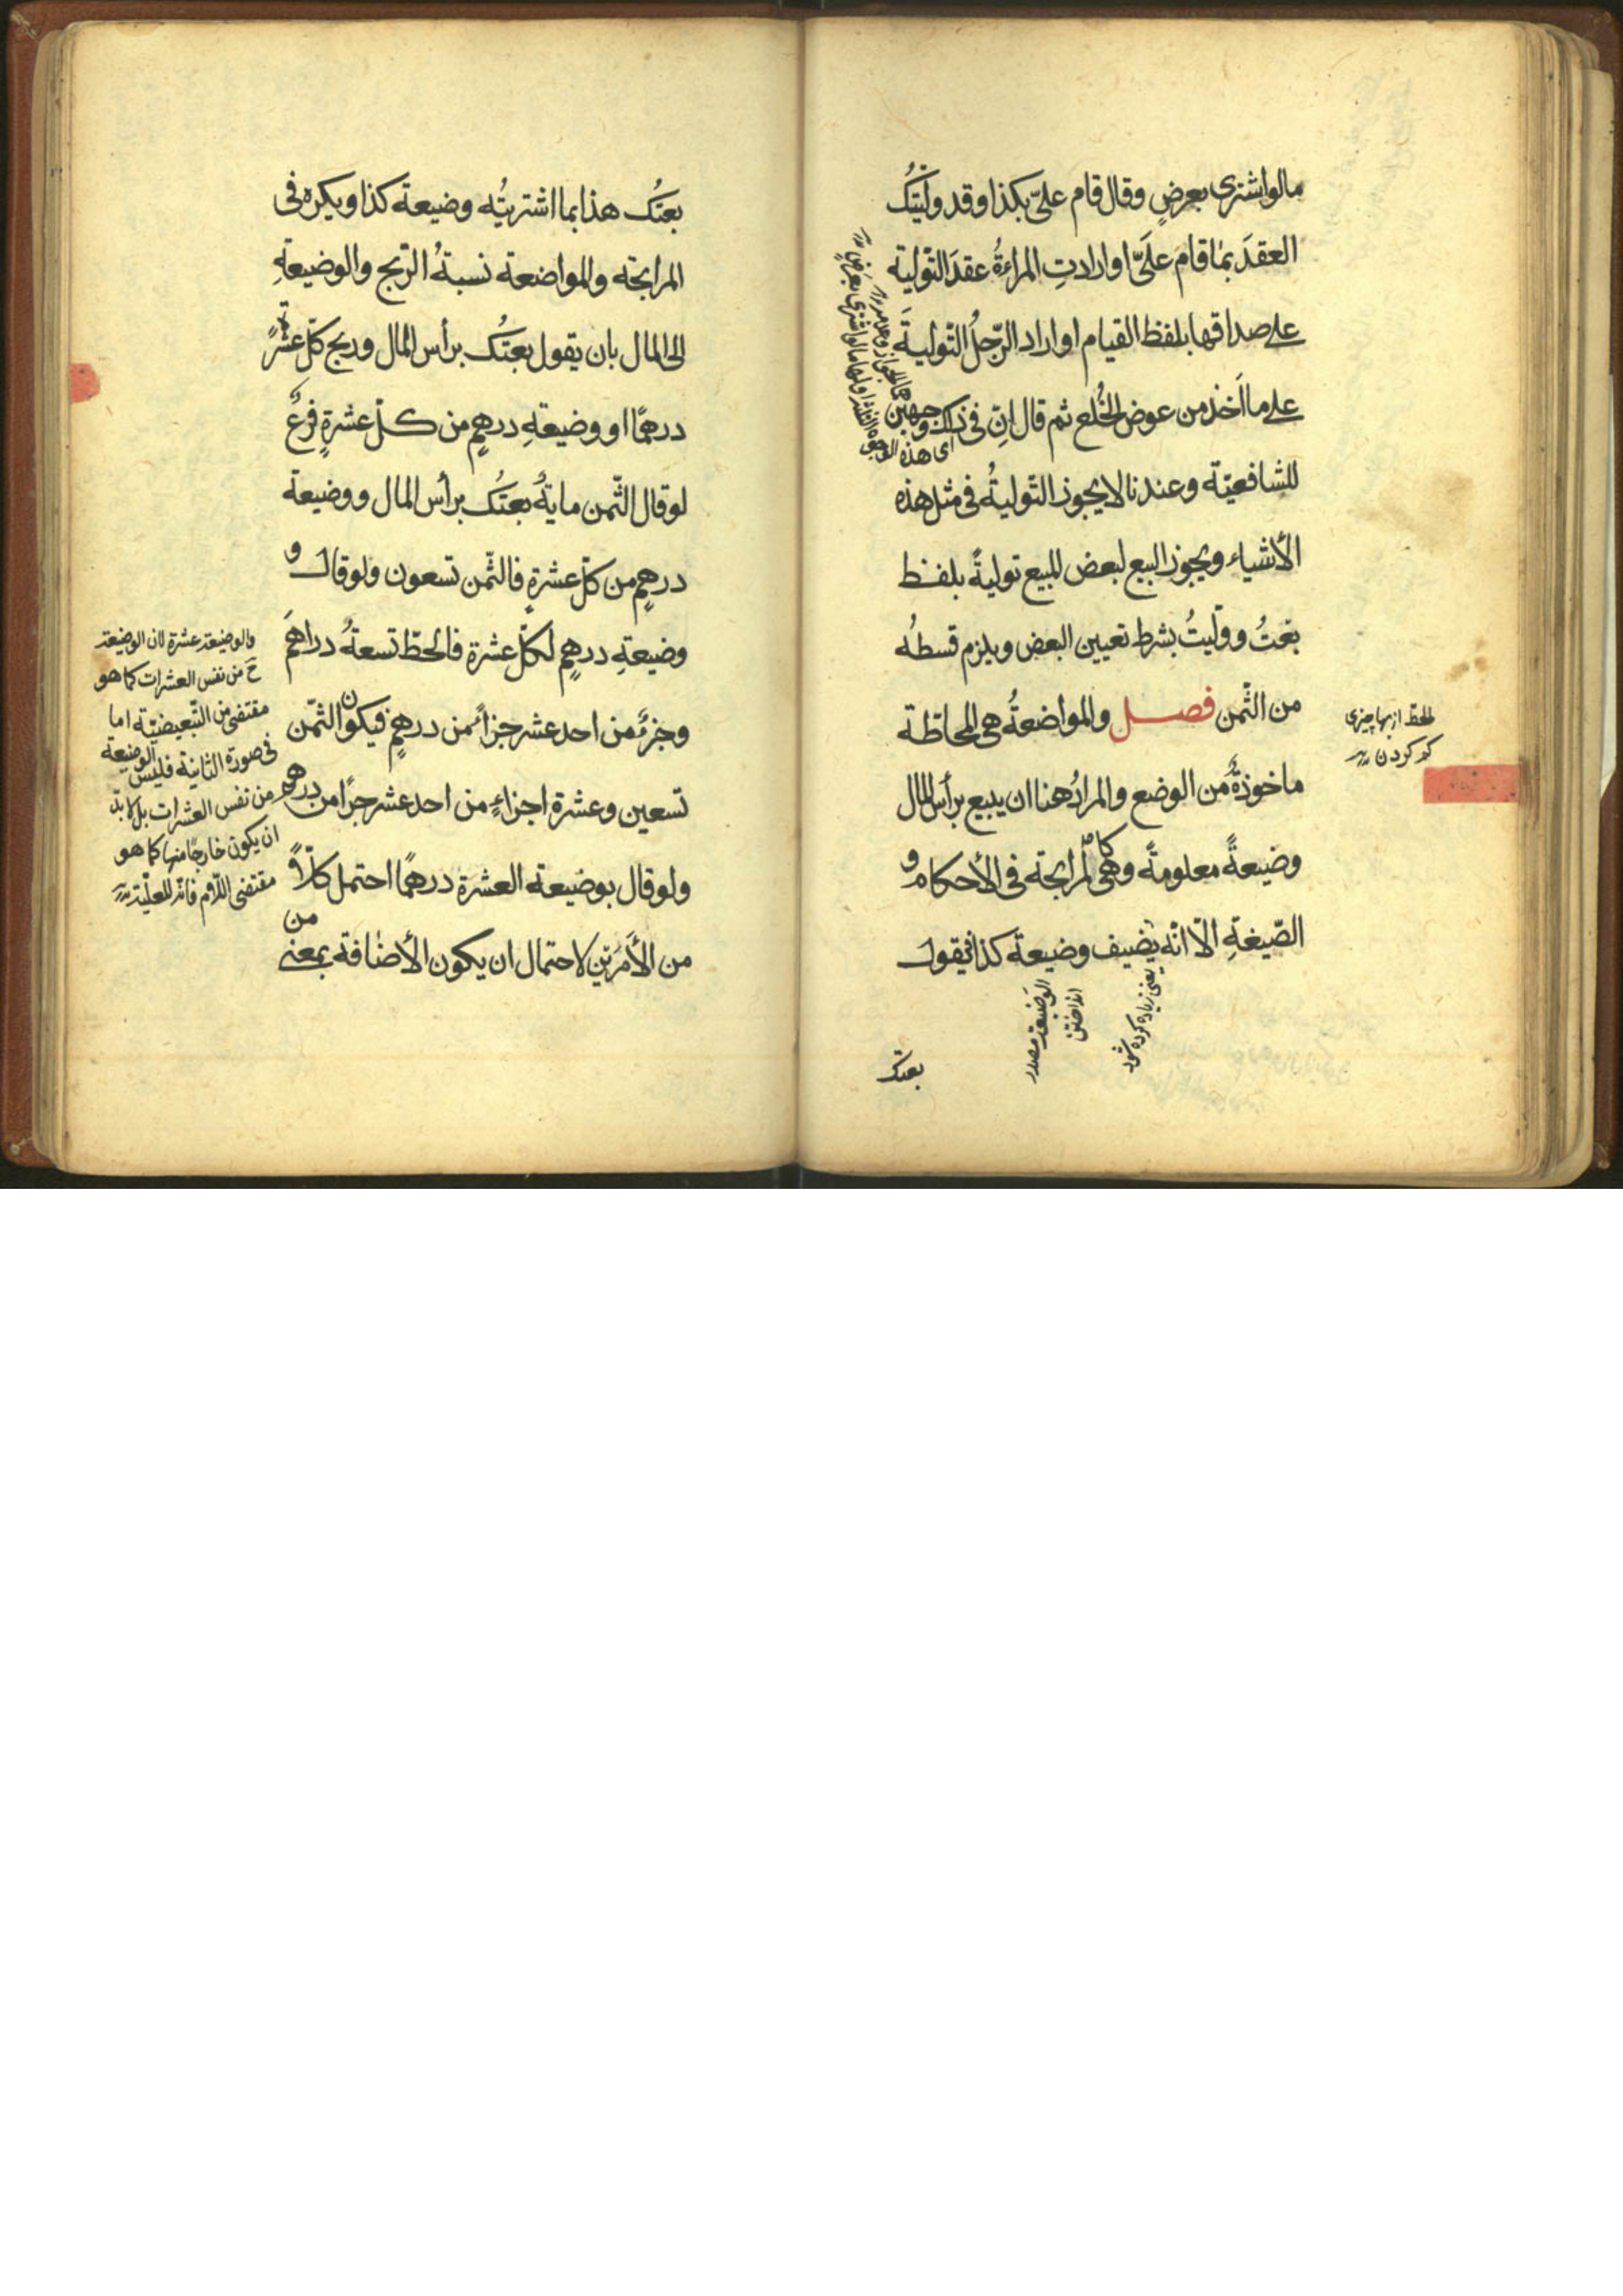 مالو اشترى بعرضٍ وقال قام علىّ بكذا وقد ولّيتُك
العقدَ بما قامَ علَىّ او ارادتِ المراءةُ عقدَ التّولية
على صداقها بلفظ القيام او اراد الرّجلُ التّوليةَ
على ما اَخذ من عوض الخُلع ثم قال انّ فى ذلك وجهين
للشافعيّة وعندنا لا يجوز التّوليةُ فى مثل هذه
الأشياء ويجوز البيع لبعض المبيع توليةً بلفظ
بعتُ وولّيتُ بشرط تعيين البعض ويلزم قسطُه
من الثّمن فصل والمواضعةُ هى المحاطّة
ماخوذةٌ من الوضع والمرادُ هنا ان يبيع برأس المال
وضيعةً معلومةً وهى كالمرابحة فى الأحكام و
الصّيغةِ الّا انّه يُضيف وضيعة كذا فيقول
بعتك
الحظ از بها چيزى
كم كردن
اى هذه الوجوه
يعنى زياده كرده شود
الوضيعة مصدر
انداختن
بعتُك هذا بما اشتريتُه وضيعة كذا ويكره فى
المرابحة والمواضعة نسبةُ الرّبح والوضيعةِ
الى المال بان يقول بعتُك برأس المال وربح كلّ عشرةٍ
درهمًا او وضيعةِ درهمٍ من كلّ عشرةٍ فرعٌ
لو قال الثّمن مايةٌ بعتُك برأس المال ووضيعة
درهمٍ من كلّ عشرةٍ فالثّمن تسعون ولو قال و
وضيعةِ درهمٍ لكلّ عشرة فالحَطّ تسعةُ دراهمَ
وجزءٌ من احد عشر جزأً من درهمٍ فيكون الثّمن
تسعين وعشرة اجزاءٍ من احد عشر جزأ من درهم
ولو قال بوضيعة العشرة درهمًا احتمل كلّاً
من الأمرَين لاحتمال ان يكون الأضافة بمعنى من
والوضيعة عشرة لان الوضيعة
ح من نفس العشرات كما هو
مقتضى من التّبعيضيّة اما
فى صورة الثانية فليس الوضيعة
من نفس العشرات بل لا بدّ
ان يكون خارجًا منها كما هو
مقتضى اللّام فانّه للعلّية